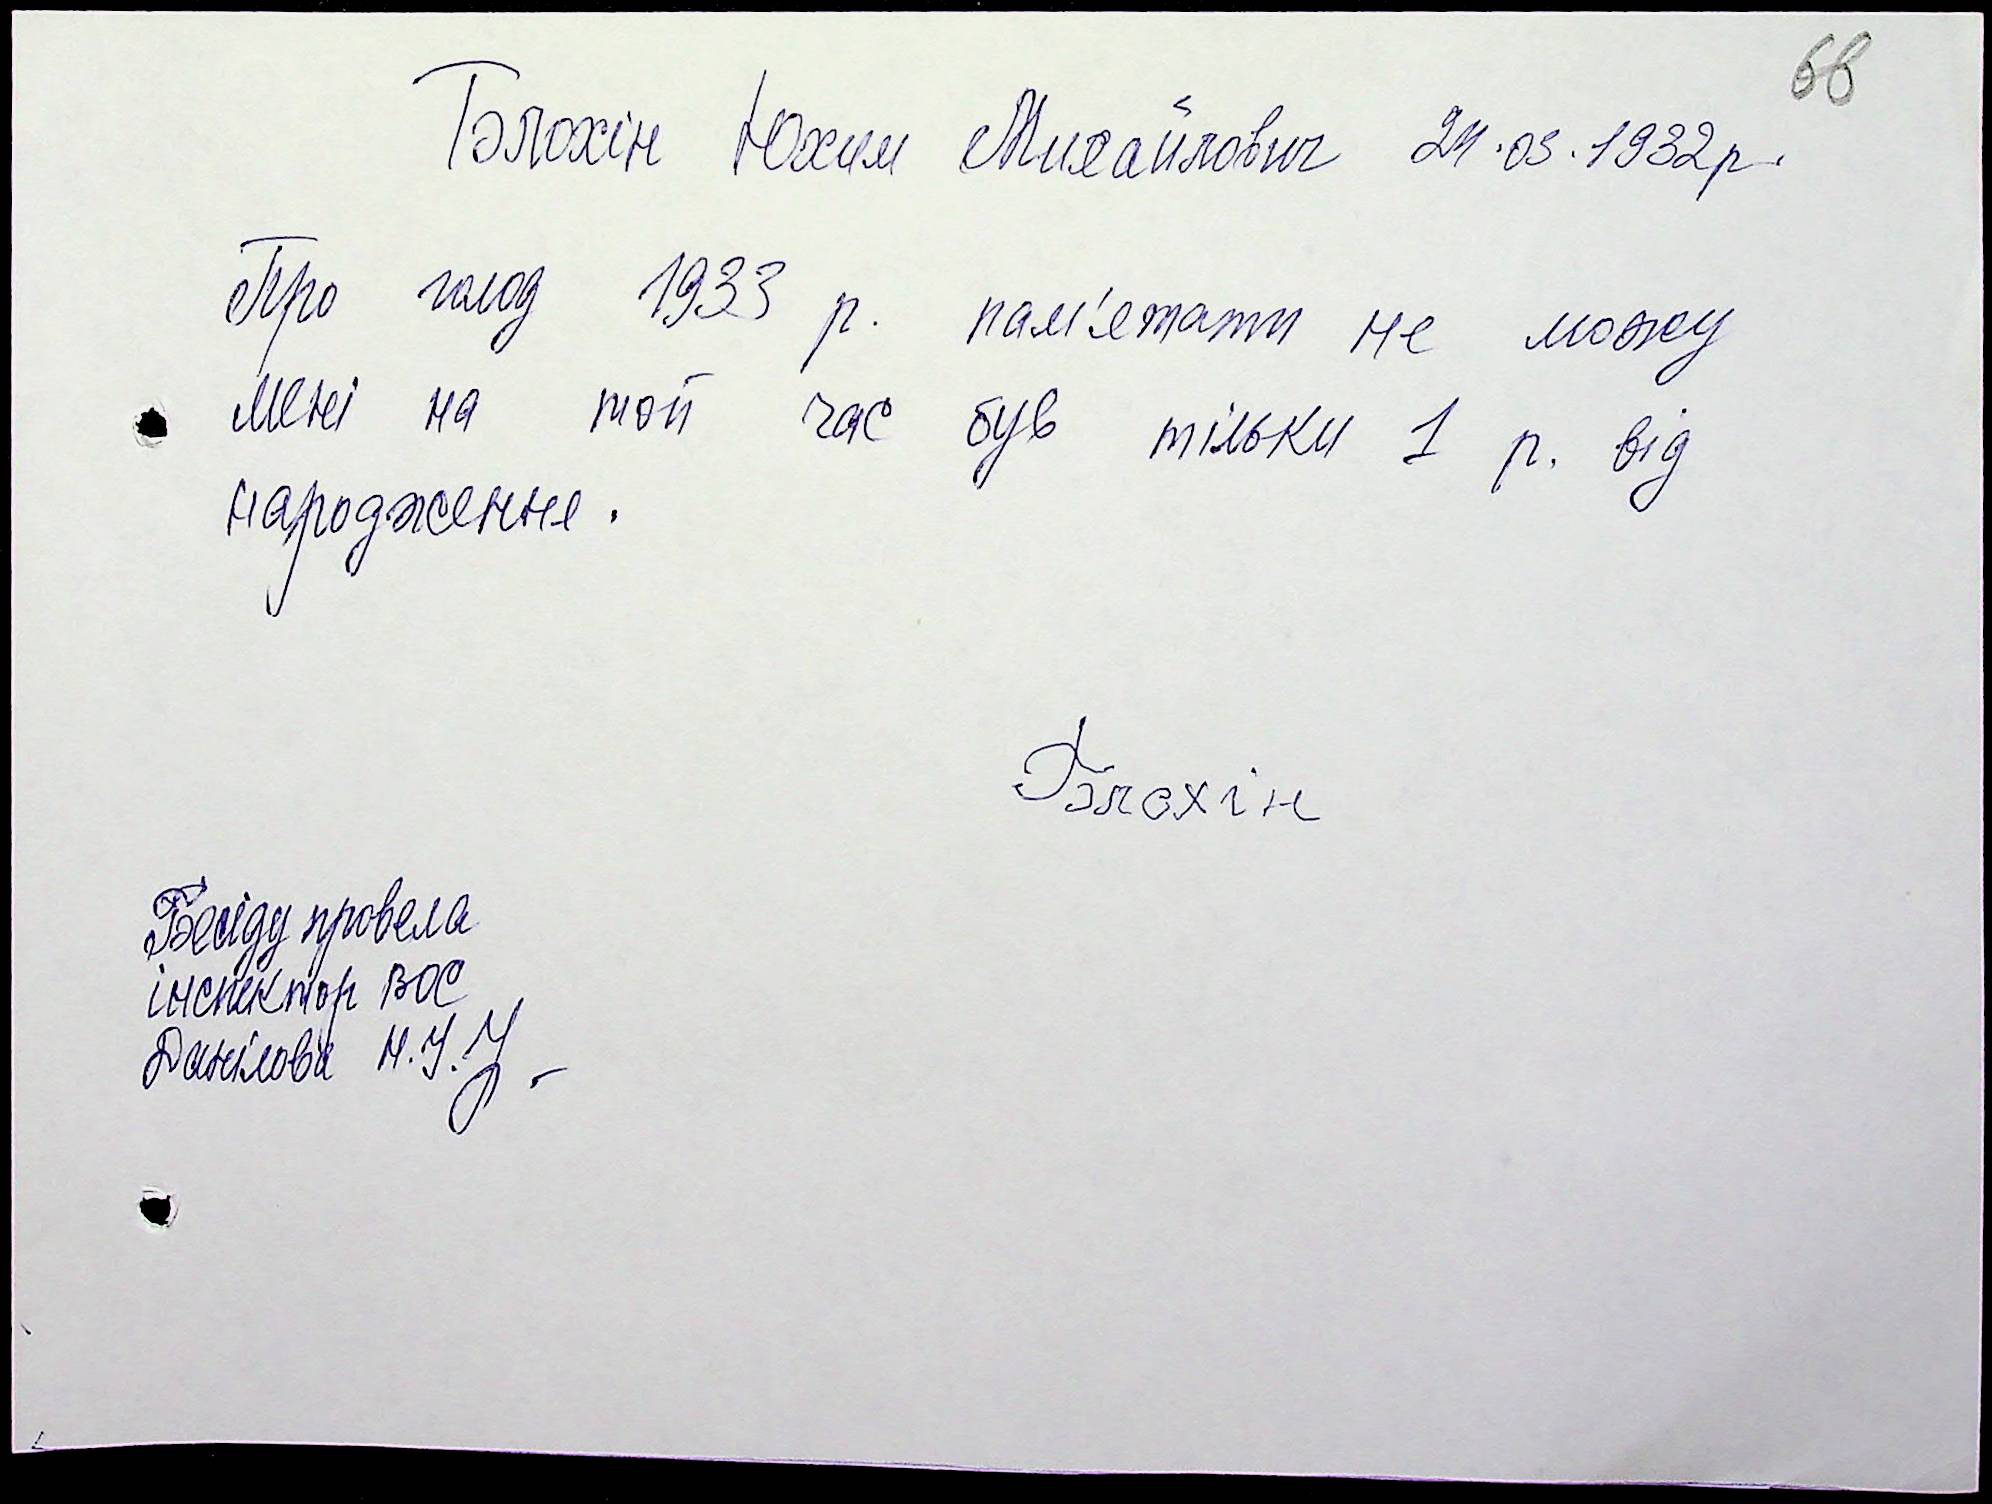 66
Блохін Юхим Михайлович 24.03.1932р.
Про голод 1933 р. пам'ятати не можу
мені на той час був тільки 1 р. від
народження.
Блохін
Бесіду провела
інспектор ВОС
Данілова Н.У.